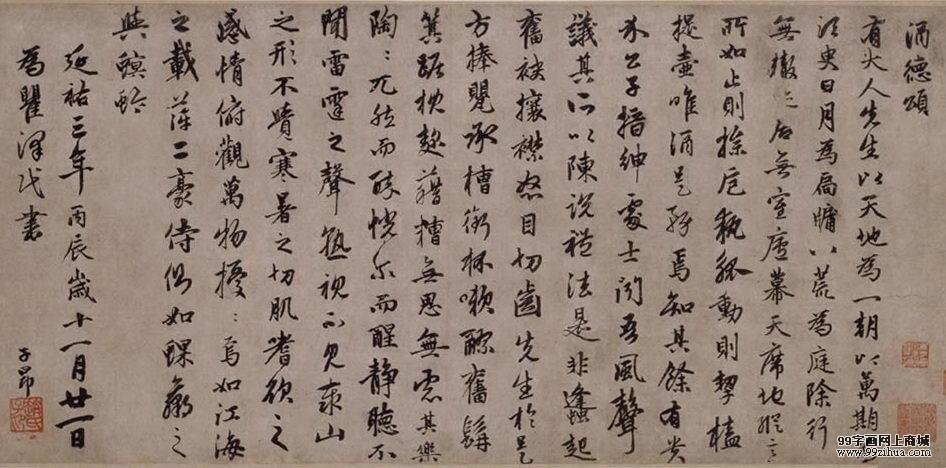 酒德頌
有大人先生以天地為一朝以萬期
須臾日月為扃牖八荒為庭除行
無轍跡居無室廬幕天席地縱意
所如止則操卮執觚動則挈榼
提壺唯酒是務焉知其餘有貴
介公子搢紳處士聞吾風聲
議其所以陳說禮法是非蠭起
奮袂攘襟怒目切齒先生於是
方捧甖承槽銜杯漱醪奮髯
箕踞枕麴藉糟無思無慮其樂
陶〻兀然而醉恍尔而醒靜聽不
聞雷霆之聲熟視不見泰山
之形不覺寒暑之切肌嗜欲之
感情俯觀萬物擾〻焉如江海
之載萍二豪侍側如蜾蠃之
與螟蛉
延祐三年丙辰歲十一月廿一日
為瞿澤民書
子昂
99字画网上商城
www.99zihua.com